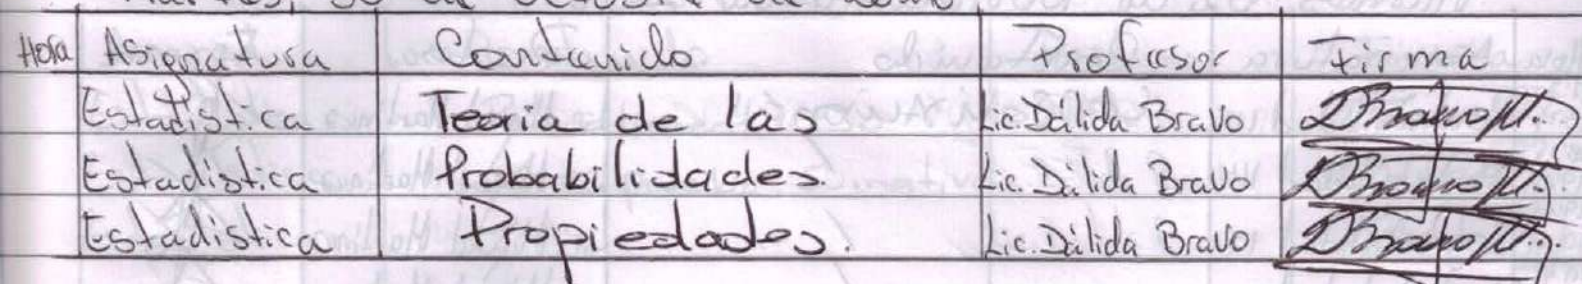 Martes, 30 de Octubre de
Hora Asignatura Contenido Profesor Firma
Estadistica Teoria de las Lic. Dálida Bravo DBravo M.
Estadistica Probabilidades. Lic. Dálida Bravo DBravo M.
Estadistica Propiedades. Lic. Dálida Bravo DBravo M.